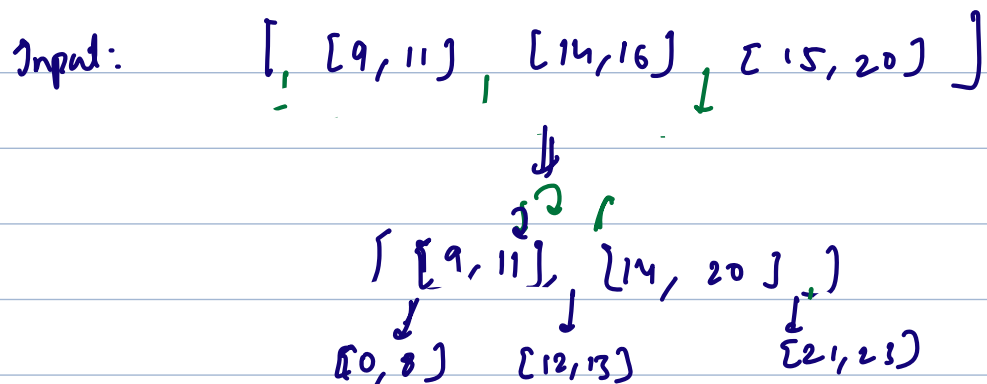 Input: [ [9, 11] , [14,16] , [15, 20] ]
[ [9, 11], [14, 20] ]
[0, 8] [12,13] [21,23]